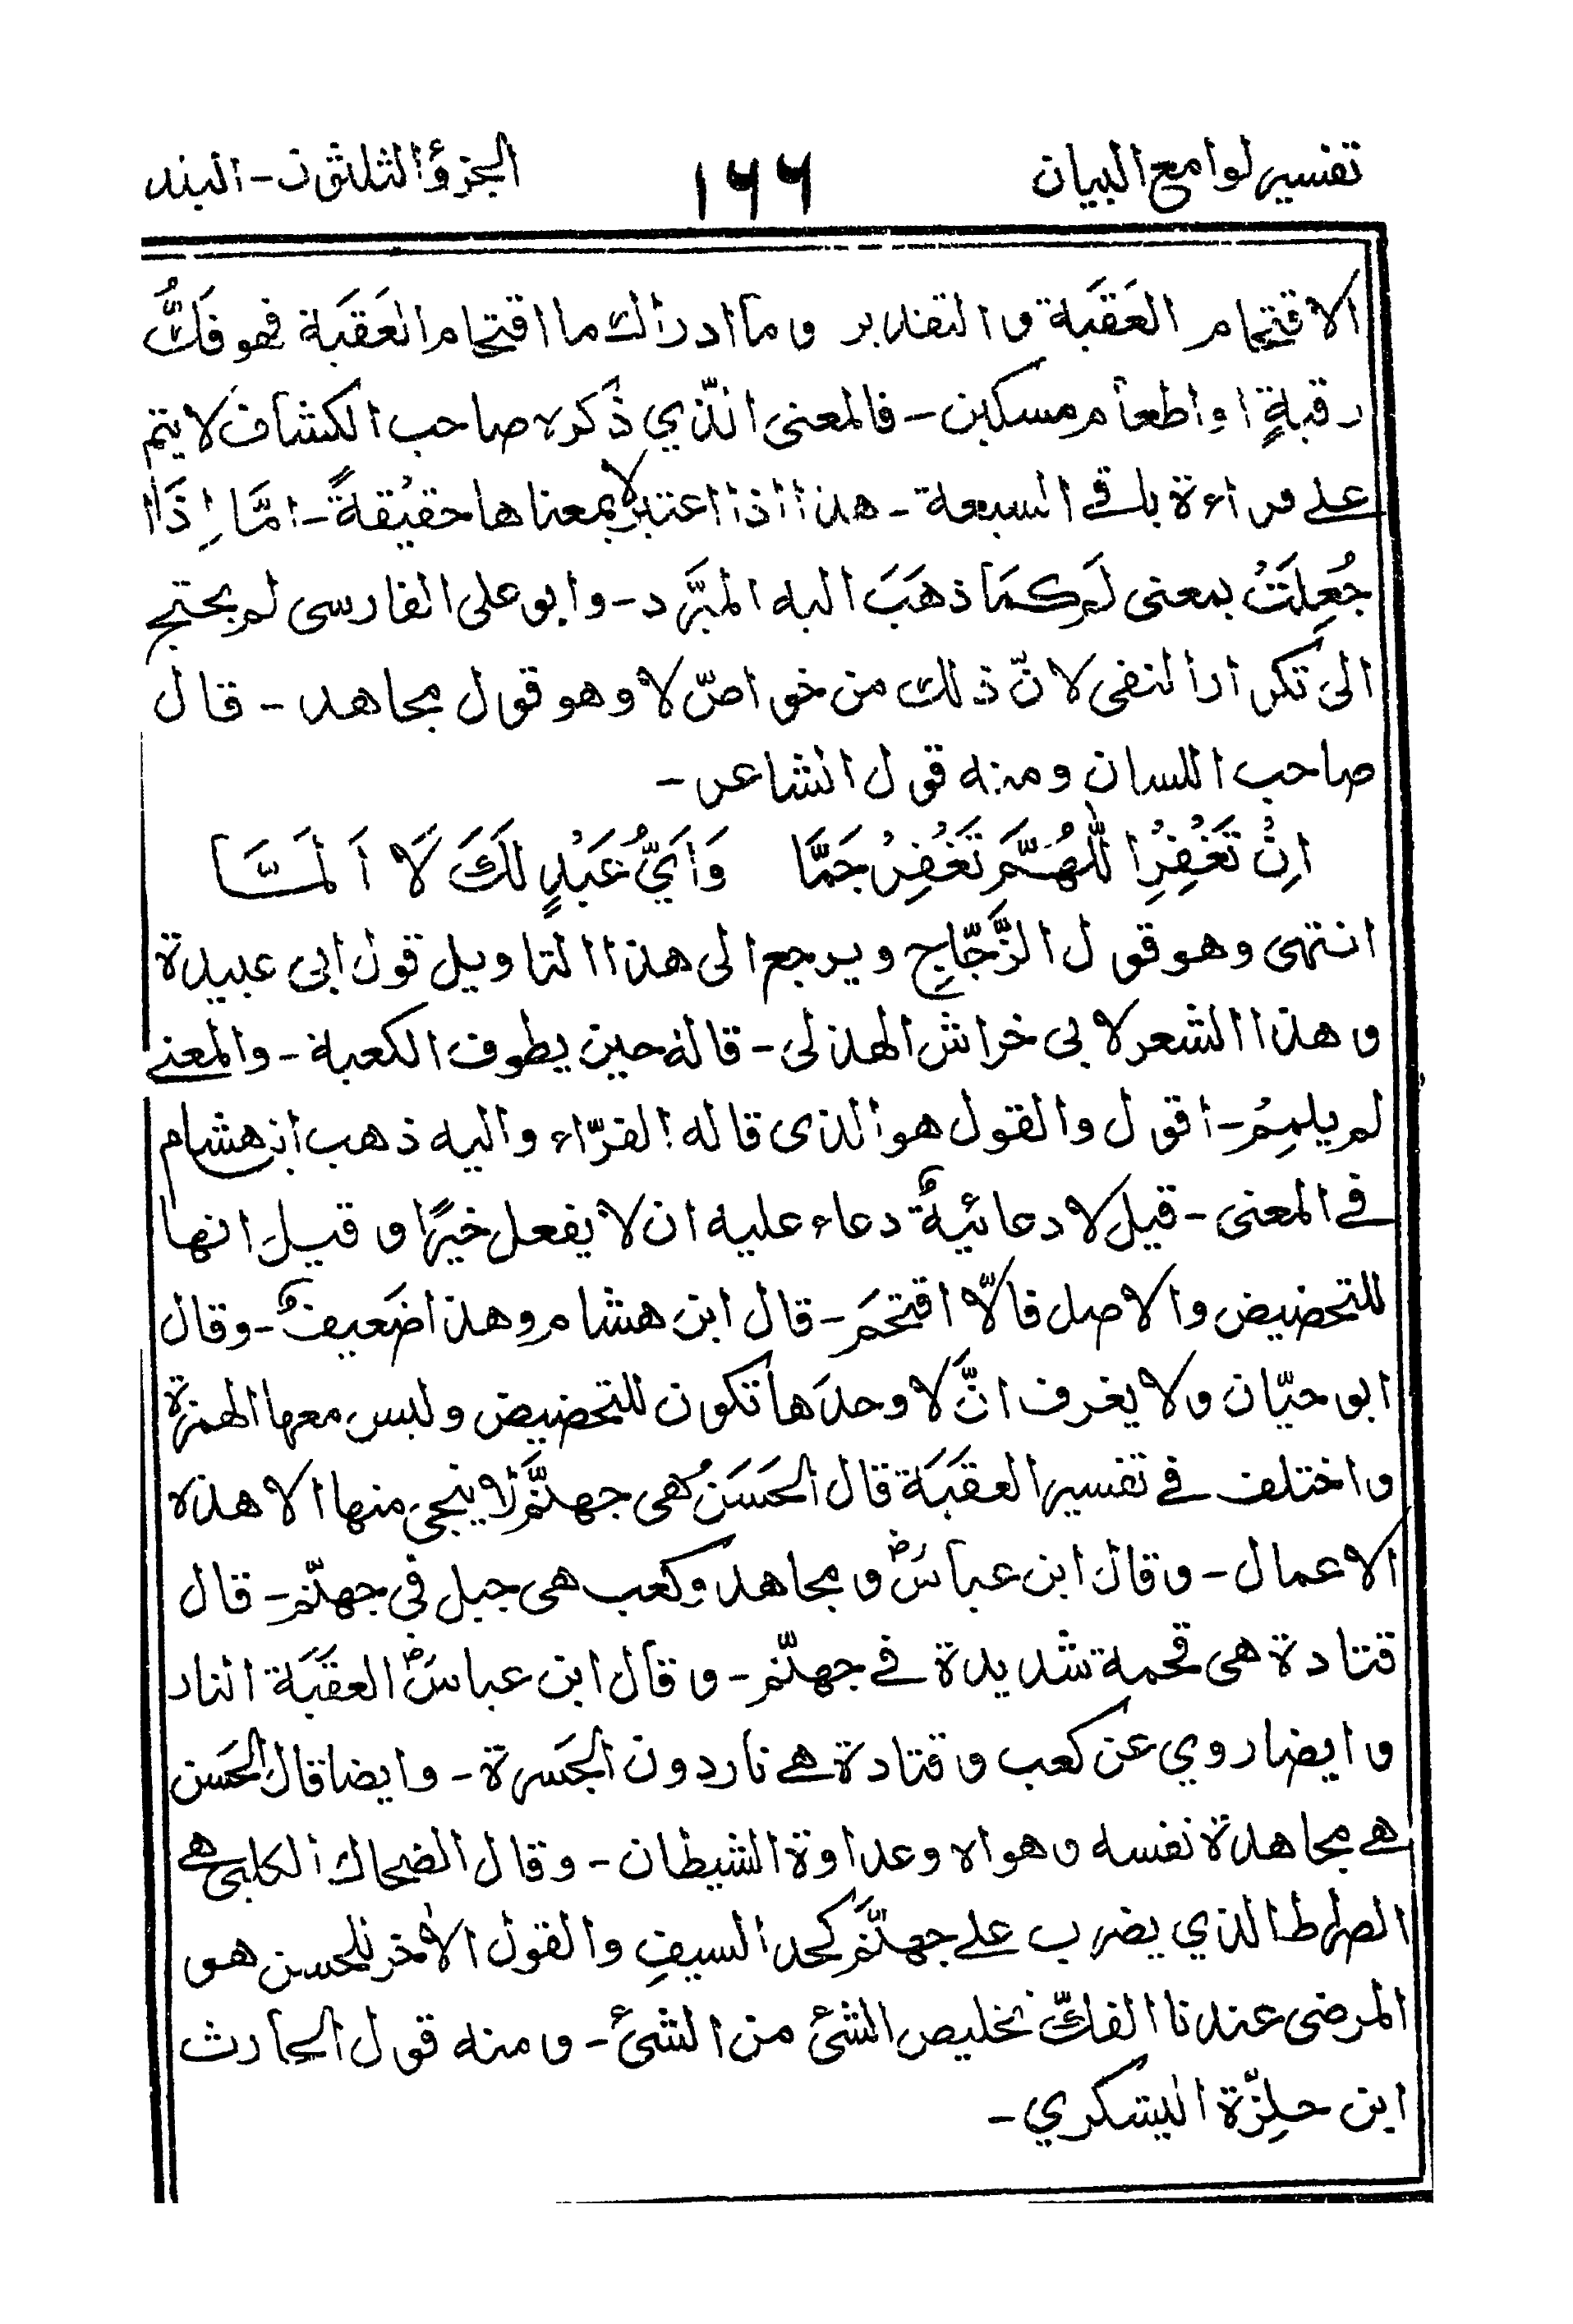 تفسير لوامع البيان ١٦٦ الجزؤ الثلثون - البلد
الاقتحام العَقَبَة و التقدير و ما ادراك ما اقتحام العَقَبَة فهو فَكُّ
رقبةٍ او اطعام مسكين - فالمعنى الذي ذَكره صاحب الكشاف لا يتم
على قراءة باقي السبعة - هذا اذا اعتبر لا بمعناها حقيقةً - امَّا إِذَا
جُعِلَتْ بمعنى لَم كمَا ذهَبَ اليه المبَرَّد - وابو على الفارسى لم يحتج
الى تكرار النفى لانّ ذلك من خواصّ لا وهو قول مجاهد - قال
صاحب اللسان ومنه قول الشاعر -
اِنْ تَغْفِرِ اللّٰهُمَّ تَغْفِرْ جَمَّا وَاَيُّ عَبْدٍ لَكَ لَا اَلَمَّا
انتهى وهو قول الزَّجّاجِ ويرجع الى هذا التاويل قول ابى عبيدة
و هذا الشعر لابى خراش الهذلى - قاله حين يطوف الكعبة - والمعنى
لم يلمِمْ - اقول والقول هو الذى قاله الفرّاء واليه ذهب ابن هشام
فے المعنى - قيل لا دعائيةٌ دعاء عليه ان لا يفعل خيرًا و قيل انها
للتحضيض والاصل فالّا اقتحَم - قال ابن هشام وهذا ضَعيفٌ - وقال
ابو حيّان ولا يعرف انَّ لا وحدَها تكون للتحضيض وليس معها الهمزة
و اختلف فے تفسير العقَبَة قال الحَسَنُ هى جهنَّم لا ينجى منها الا هذه
الاعمال - و قال ابن عباسؓ و مجاهد وكعب هى جبل فى جهنّم - قال
قتادة هى قحمة شديدة فے جهنّم - و قال ابن عباسؓ العقَبَة النار
و ايضا روي عن كعب و قتادة هے نار دون الجَسرة - وايضا قال الحَسن
هے مجاهدة نفسه و هواه وعداوة الشيطان - وقال الضحاك الكلبى هے
الصراط الذي يضرب على جهنَّم كحد السيفِ والقول الاٰخر للحسن هو
المرضى عندنا الفكّ تخليص الشئ من الشئ - و منه قول الحارث
ابن حلِزّة اليشكري -